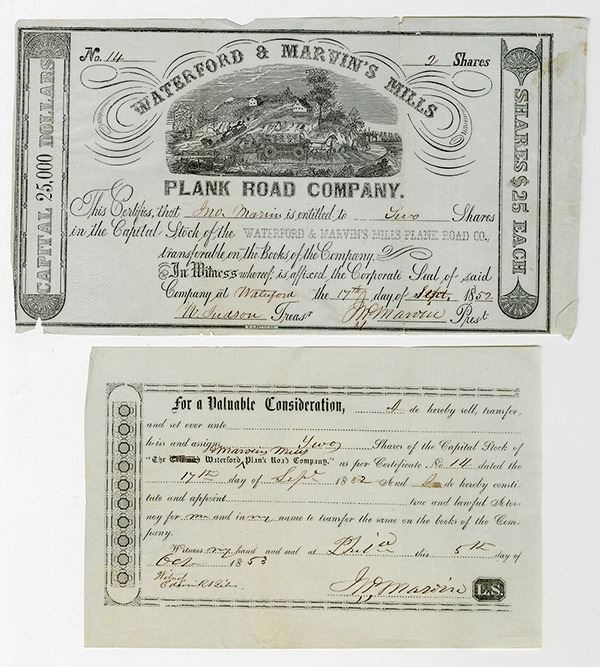 No. 14 2 Shares
WATERFORD & MARVIN'S MILLS
PLANK ROAD COMPANY.
CAPITAL 25,000 DOLLARS
SHARES $25 EACH
This Certifies, that Jno. Marvin is entitled to Two Shares
in the Capital Stock of the WATERFORD & MARVIN'S MILLS PLANK ROAD CO.,
transferable on the Books of the Company.
In Witness whereof, is affixed the Corporate Seal of said
Company at Waterford the 17th day of Sept. 1852
W. Judson Treasr Jno Marvin Prest
For a Valuable Consideration, I do hereby sell, transfer,
and set over unto
heirs and assigns Two Shares of the Capital Stock of
& Marvins Mills
"The Waterford Plan's Road Company," as per Certificate No. 14 dated the
17th day of Sept 1852 And I do hereby consti-
tute and appoint true and lawful Attor-
ney for me and in my name to transfer the same on the books of the Com-
pany.
Witness my hand and seal at this 5th day of
Oct 1853
Witness
Jno Marvin L.S.